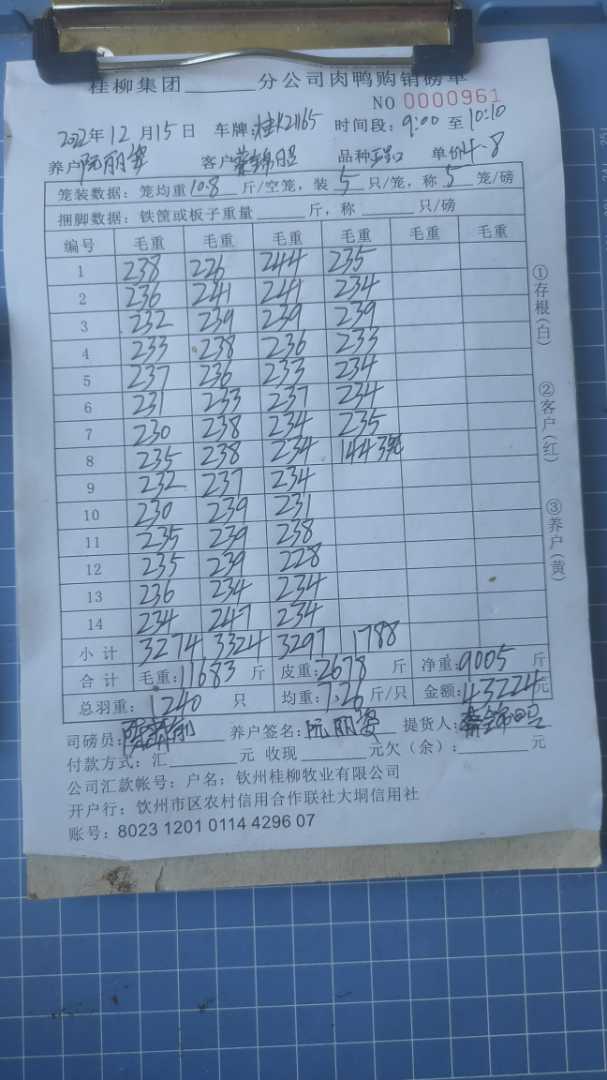 桂柳集团 分公司肉鸭购销磅单
NO 0000961
2022年12月15日 车牌:桂K21165 时间段:9:00至10:10
养户阮丽婆 客户 品种 单价4.8
笼装数据:笼均重10.8斤/空笼,装5只/笼,称5笼/磅
捆脚数据:铁筐或板子重量 斤,称 只/磅
编号 毛重 毛重 毛重 毛重 毛重 毛重
1 238 226 244 235
2 236 241 241 234
3 232 239 239 239
4 233 238 236 233
5 237 236 233 234
6 231 233 237 234
7 230 238 234 235
8 235 238 234 144 3笼
9 232 237 234
10 230 239 231
11 235 239 238
12 235 239 228
13 236 234 234
14 234 247 234
小计 3274 3324 3297 1788
合计 毛重:11683斤 皮重:2678斤 净重:9005斤
总羽重:1240只 均重:7.26斤/只 金额:43224元
司磅员: 养户签名:阮丽婆 提货人:
付款方式:汇 元 收现 元欠(余): 元
公司汇款帐号:户名:钦州桂柳牧业有限公司
开户行:钦州市区农村信用合作联社大垌信用社
账号:8023 1201 0114 4296 07
①存根(白)
②客户(红)
③养户(黄)